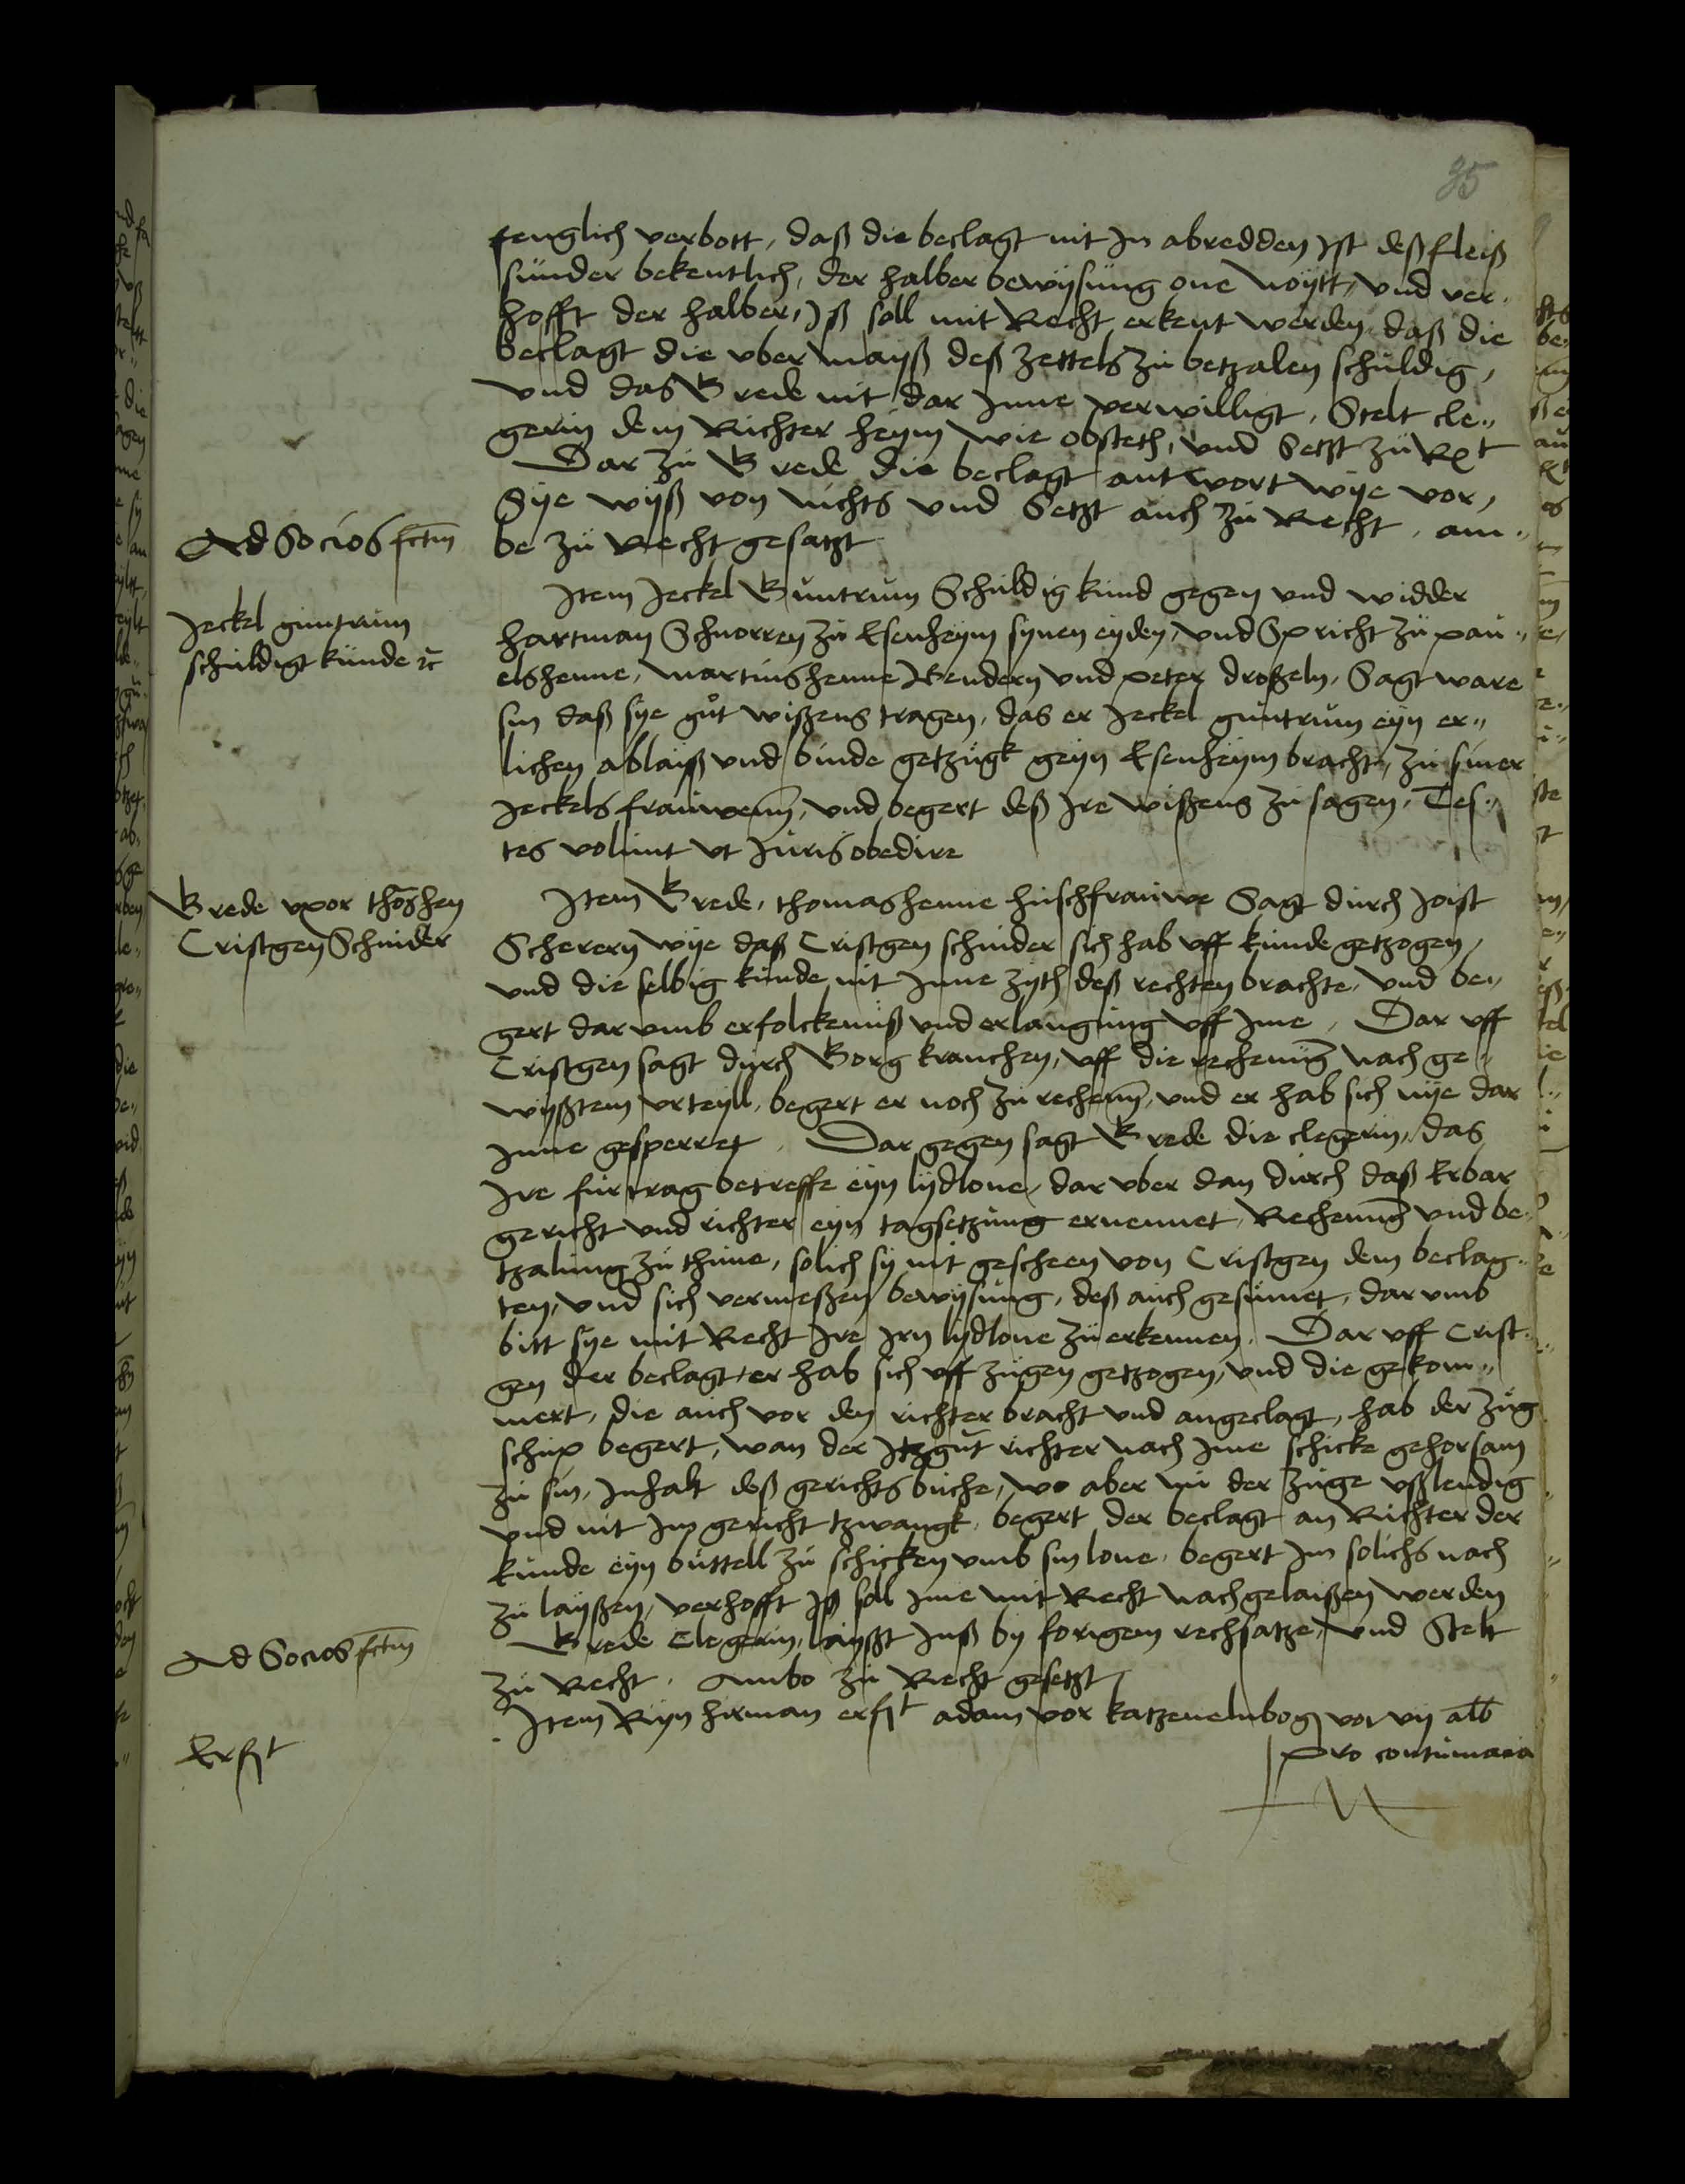 35
fenglich verbott, daß die beclagt nit In abredden Ist deß fleiß
sünder bekentlich, der halber bewÿsüng one noÿtt, vnd ver„
hofft der halber, Iß soll mit Recht erkent werden daß die
beclagt die vbermayß deß zettels zü betzalen schüldig,
vnd das Grede nit dar Inne verwilligt, Stelt cle„
gerin dem Richter heym wie obsteth, vnd Setzt zü Rcht
Dar zü Grede die beclagt antwort wÿe vor,
Sÿe wÿß von nichts vnd Setzt aüch zü Recht, am„
Ad Socios fctm
be zü Recht gesatzt
Item Jeckel Güntrum Schüldig künd gegen vnd widder
Jeckel güntrüm
schüldigt künde ꝛc
hartman Schnorren zü Esenheÿm sÿnen eÿden, vnd Spricht zü paü„
elshenne, martinshenne Bendern vnd peter droßeln, Sagt ware
sin daß sÿe gůt wißens tragen, das er Jeckel güntrüm eÿn er„
lichen ablaiß vnd binde getzügk geÿn Esenheÿm bracht, zü siner
Jeckels fraüwenn, vnd begert deß Ire wißens zü sagen, Tes„
tes volünt vt Jüris obedire
Grede vxor thoshen
Cristgen Schnider
Item Grede, thomashenne hüschfraüwe Sagt dürch Joist
Scherern wÿe daß Cristgen schnider sich hab vff künde getzogen,
vnd die selbig künde nit Inne zÿth deß rechten brachte, vnd be„
gert dar vmb erfolckeniß vnd erlangüng vff Ime, Dar vff
Cristgen sagt dürch Borg krauchen, vff die rechenüng nach ge„
wÿßtem vrteÿll, begert er noch zü rechenn, vnd er hab sich nÿe dar
Inne gesperret, Dar gegen sagt Grede die clegerin, das
Ire fürtrag betreffe eÿn lÿdlone, dar vber dan dürch daß Erbar
gericht vnd richter eÿn tagsetzüng ernennet, Rechenüng vnd be„
tzalüng zü thüne, solich sÿ nit gescheen von Cristgen dem beclag„
ten, vnd sich vermeßen bewÿsüng, deß aüch gesümet, dar vmb
bitt sÿe mit Recht Ire Irn lÿdlone zü erkennen, Dar vff Crist„
gen der beclagt, er hab sich vff zügen getzogen, vnd die gekom„
mert, die aüch vor den richter bracht vnd angeclagt, hab der züg
schüp begert, wan der Itzgůt richter nach Ime schicke gehorsam
zü sin, Inhalt deß gerichts büche, wo aber nü der züge vßlendig
vnd nit Im gericht tzwangk, begert der beclagt an Richter der
künde eÿn büttell zü schicken vmb sin lone, begert Im solichs nach
zü laÿßen, verhofft Iß soll Ime mit Recht nachgelaißen werden
Grede Clegerin, laÿßt Inß bÿ forigem rechsatze, vnd Stelt
Ad Socios fctm
zü Recht, Ambo zü Recht gesetzt
Item Rÿn herman erft adam vor katzenelnbogen vor vij alb
Erft
pro contümacia